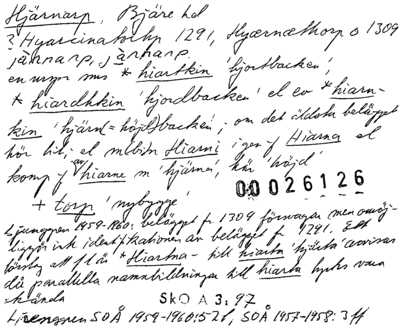 Hjärnarp, Bjäre hd
? Hyarcinathorp 1291, Hyærnæthorp o 1309
järnarp, jànnarp,
en urspr mns * hiartkin 'hjortbacken',
* hiardhkin 'hjordbacken' el ev * hiarn-
kin 'hjärn(=höjd)backen', om det äldsta belägget
hör hit, el mbitn Hiarni, i gen f Hiarna el
komp f av hiarne m 'hjärna', här 'höjd'
00026126
+ torp 'nybygge'
Ljunggren 1959-1960: belägget fr 1309 förvagar men omöj-
liggör ink identifikationen av belägget fr 1291. Ett
försök att få in *Hiartna- till hiarta 'hjärta' avvisas
då parallella namnbildningar till hiarta tycks vara
okända
SkO A 3:97
Ljunggren SOÅ 1959-1960:52f, SOÅ 1957-1958:3ff